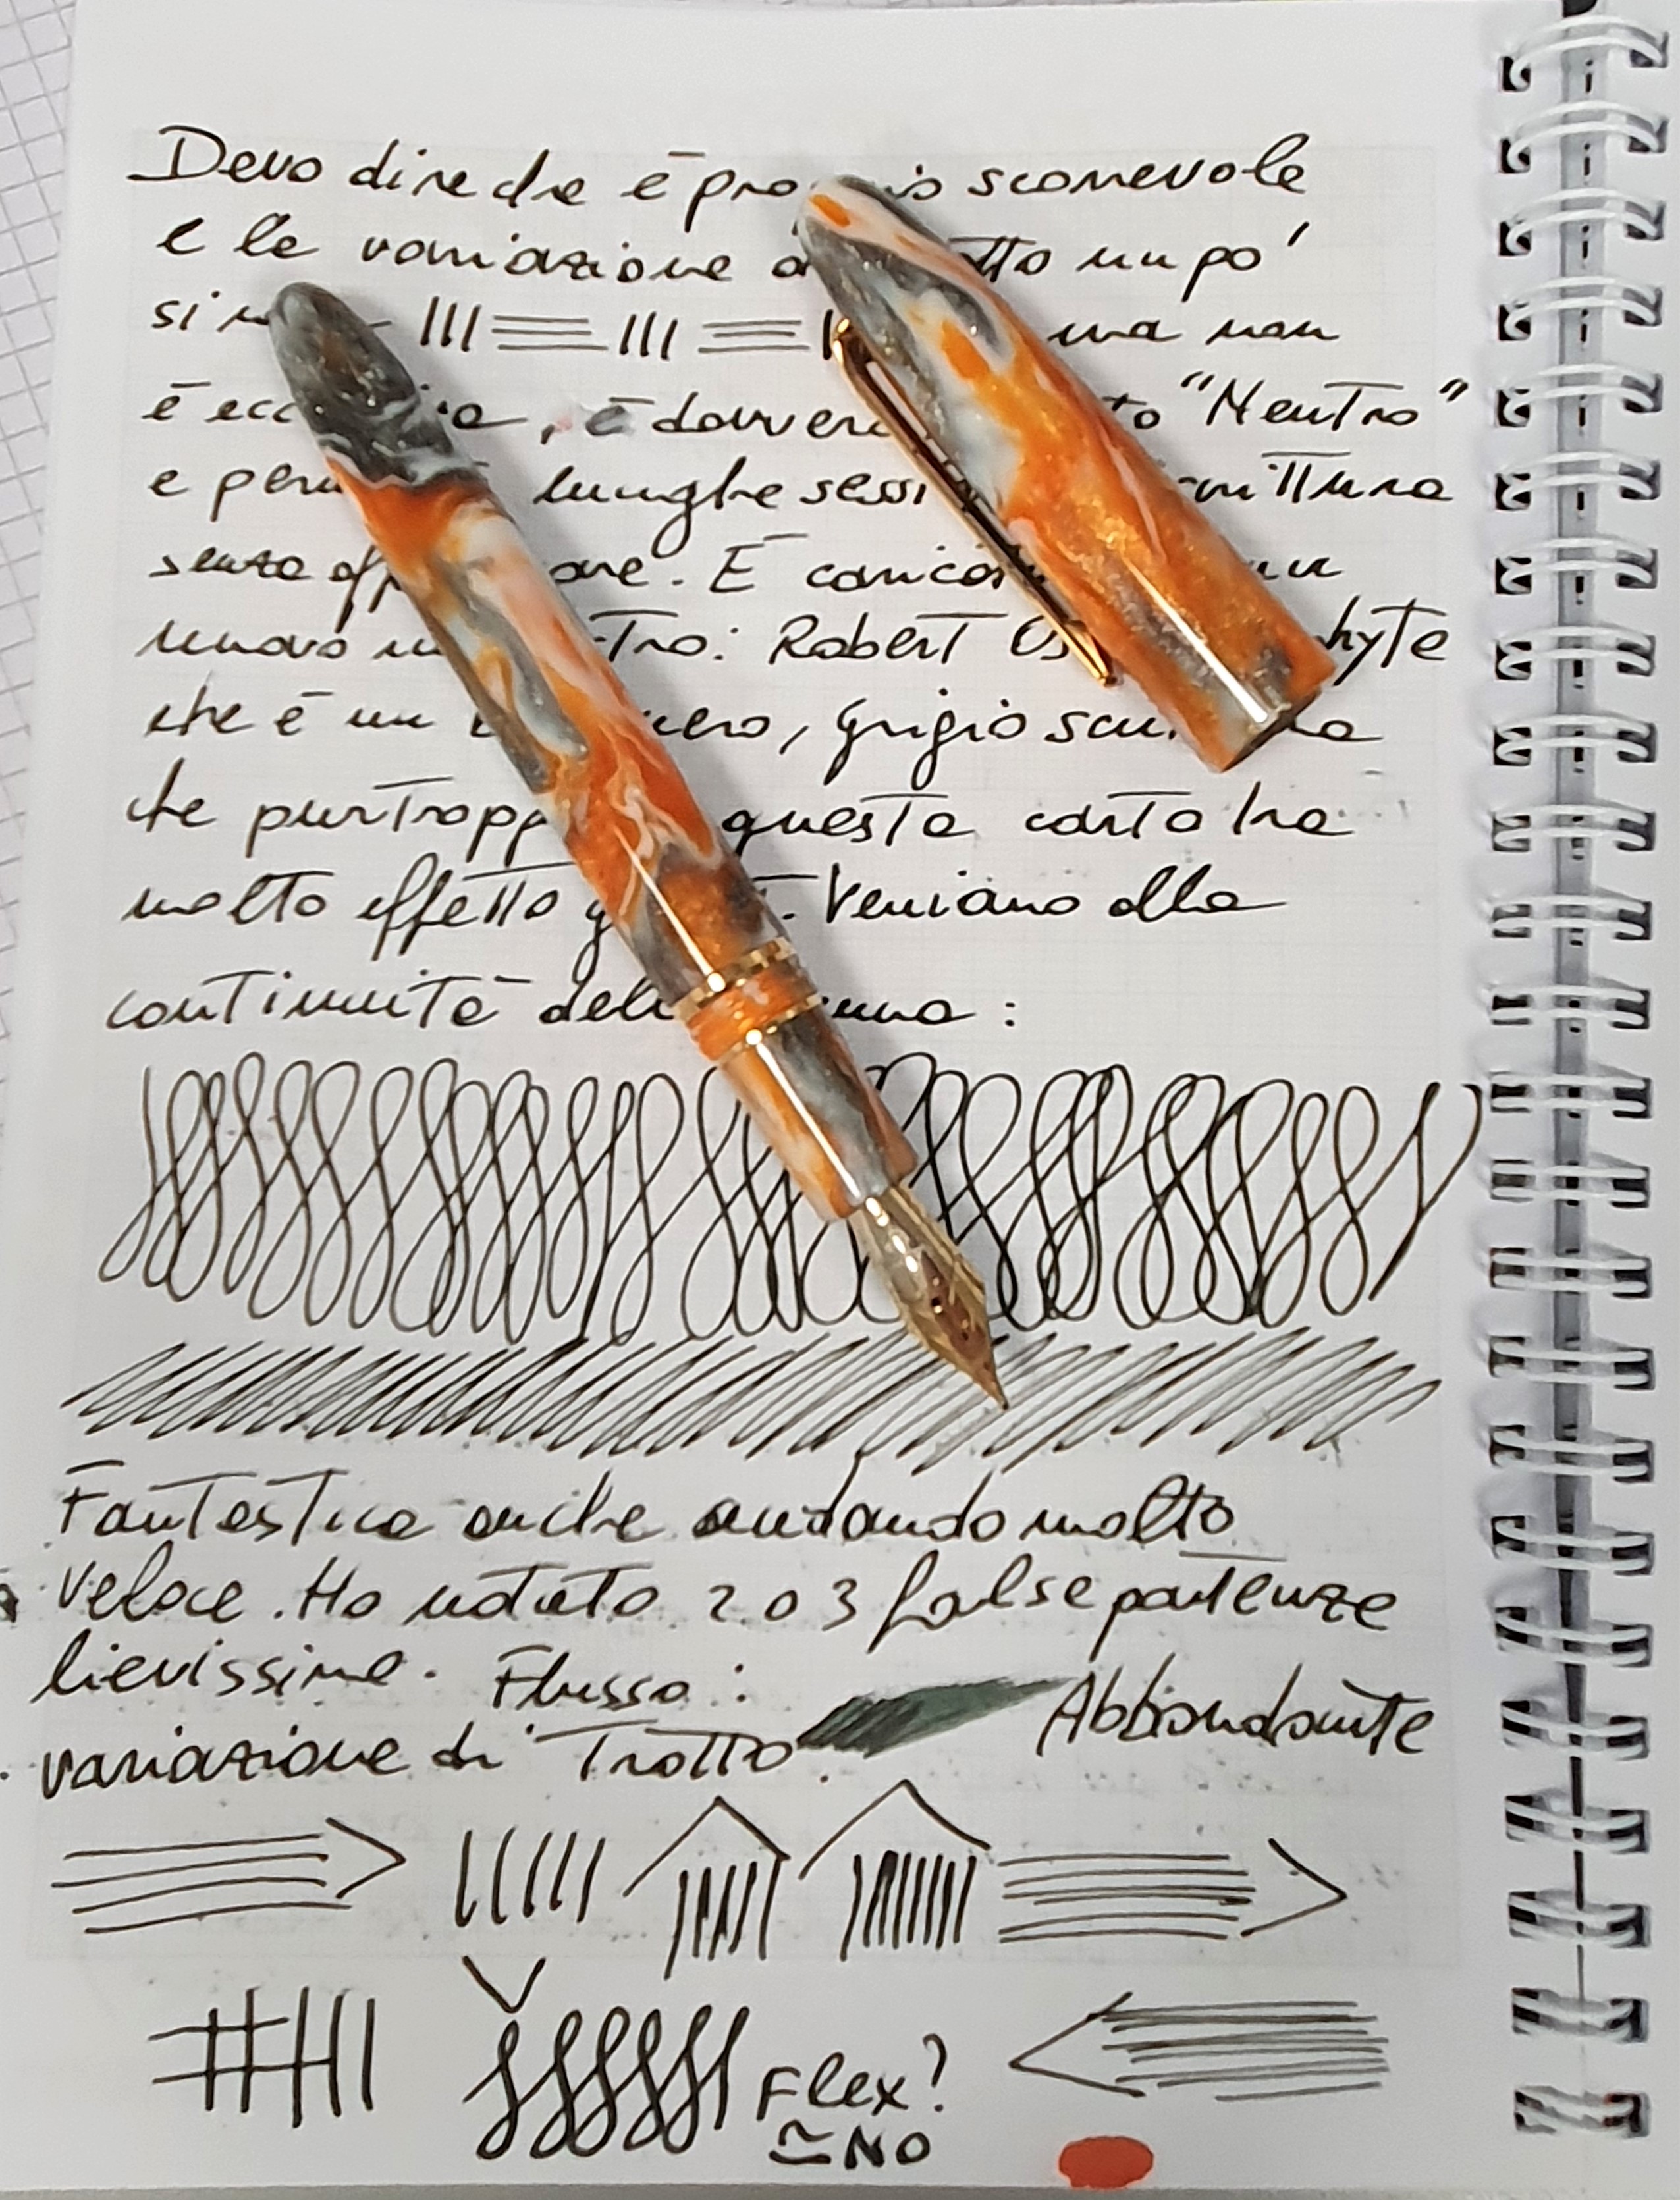 Devo dire che è scorrevole
e la variazione tratto un po'
si ||| ≡ ||| ≡ ma non
è , è davvero "Neutro"
e per lunghe scrittura
senza . È caricata un
nuovo : Robert
che è un nero, grigio
che purtroppo questa carta ha
molto effetto . Veniamo alla
continuità della :
Fantastica anche andando molto
veloce. Ho notato 2 o 3 false partenze
lievissime. Flusso: Abbondante
variazione di Tratto
Flex?
≃NO